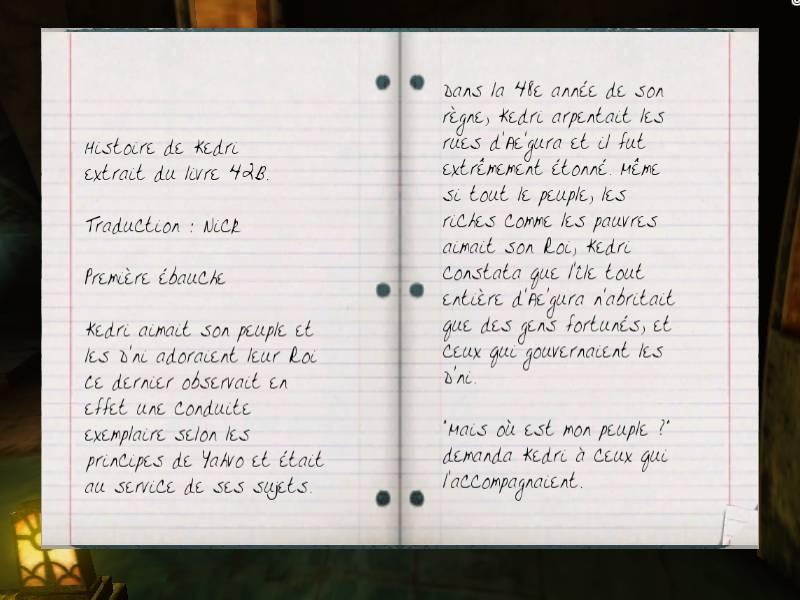 Histoire de Kedri
extrait du livre 42B.
Traduction : Nick
Première ébauche
Kedri aimait son peuple et
les D'ni adoraient leur Roi
Ce dernier observait en
effet une conduite
exemplaire selon les
principes de Yahvo et était
au service de ses sujets.
Dans la 48e année de son
règne, Kedri arpentait les
rues d'Ae'gura et il fut
extrêmement étonné. Même
si tout le peuple, les
riches comme les pauvres
aimait son Roi, Kedri
constata que l'île tout
entière d'Ae'gura n'abritait
que des gens fortunés, et
ceux qui gouvernaient les
D'ni.
"Mais où est mon peuple ?"
demanda Kedri à ceux qui
l'accompagnaient.